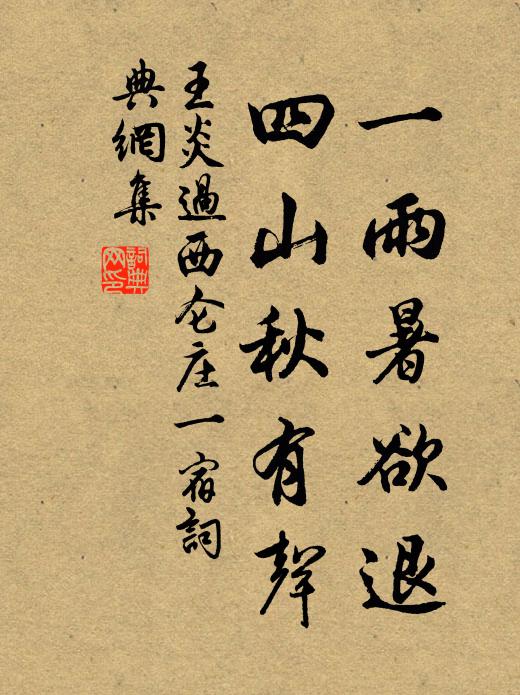 一雨暑欲退
四山秋有聲
王炎過西仑庄一宿詞
典網集
詞典網印